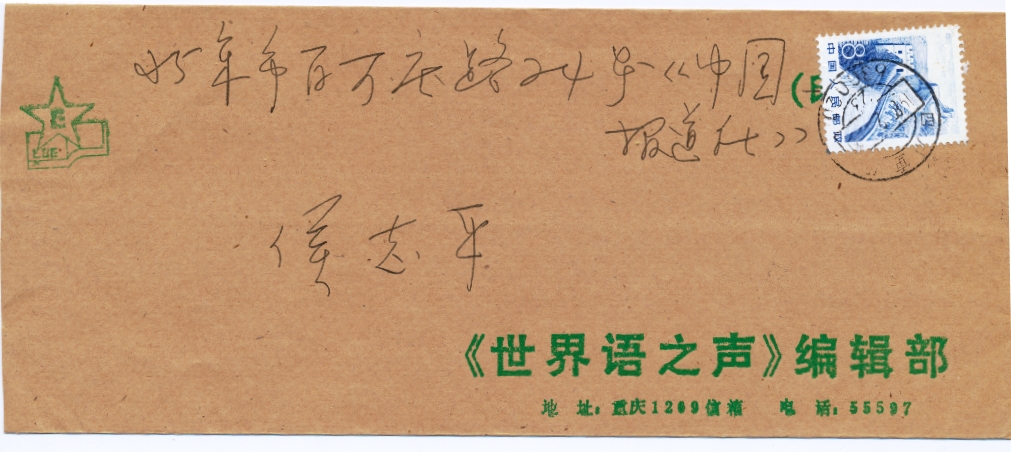 北京市百万庄路24号《中国
报道社》
侯志平
E
中国邮政
《世界语之声》编辑部
地 址：重庆1209信箱 电 话：55597